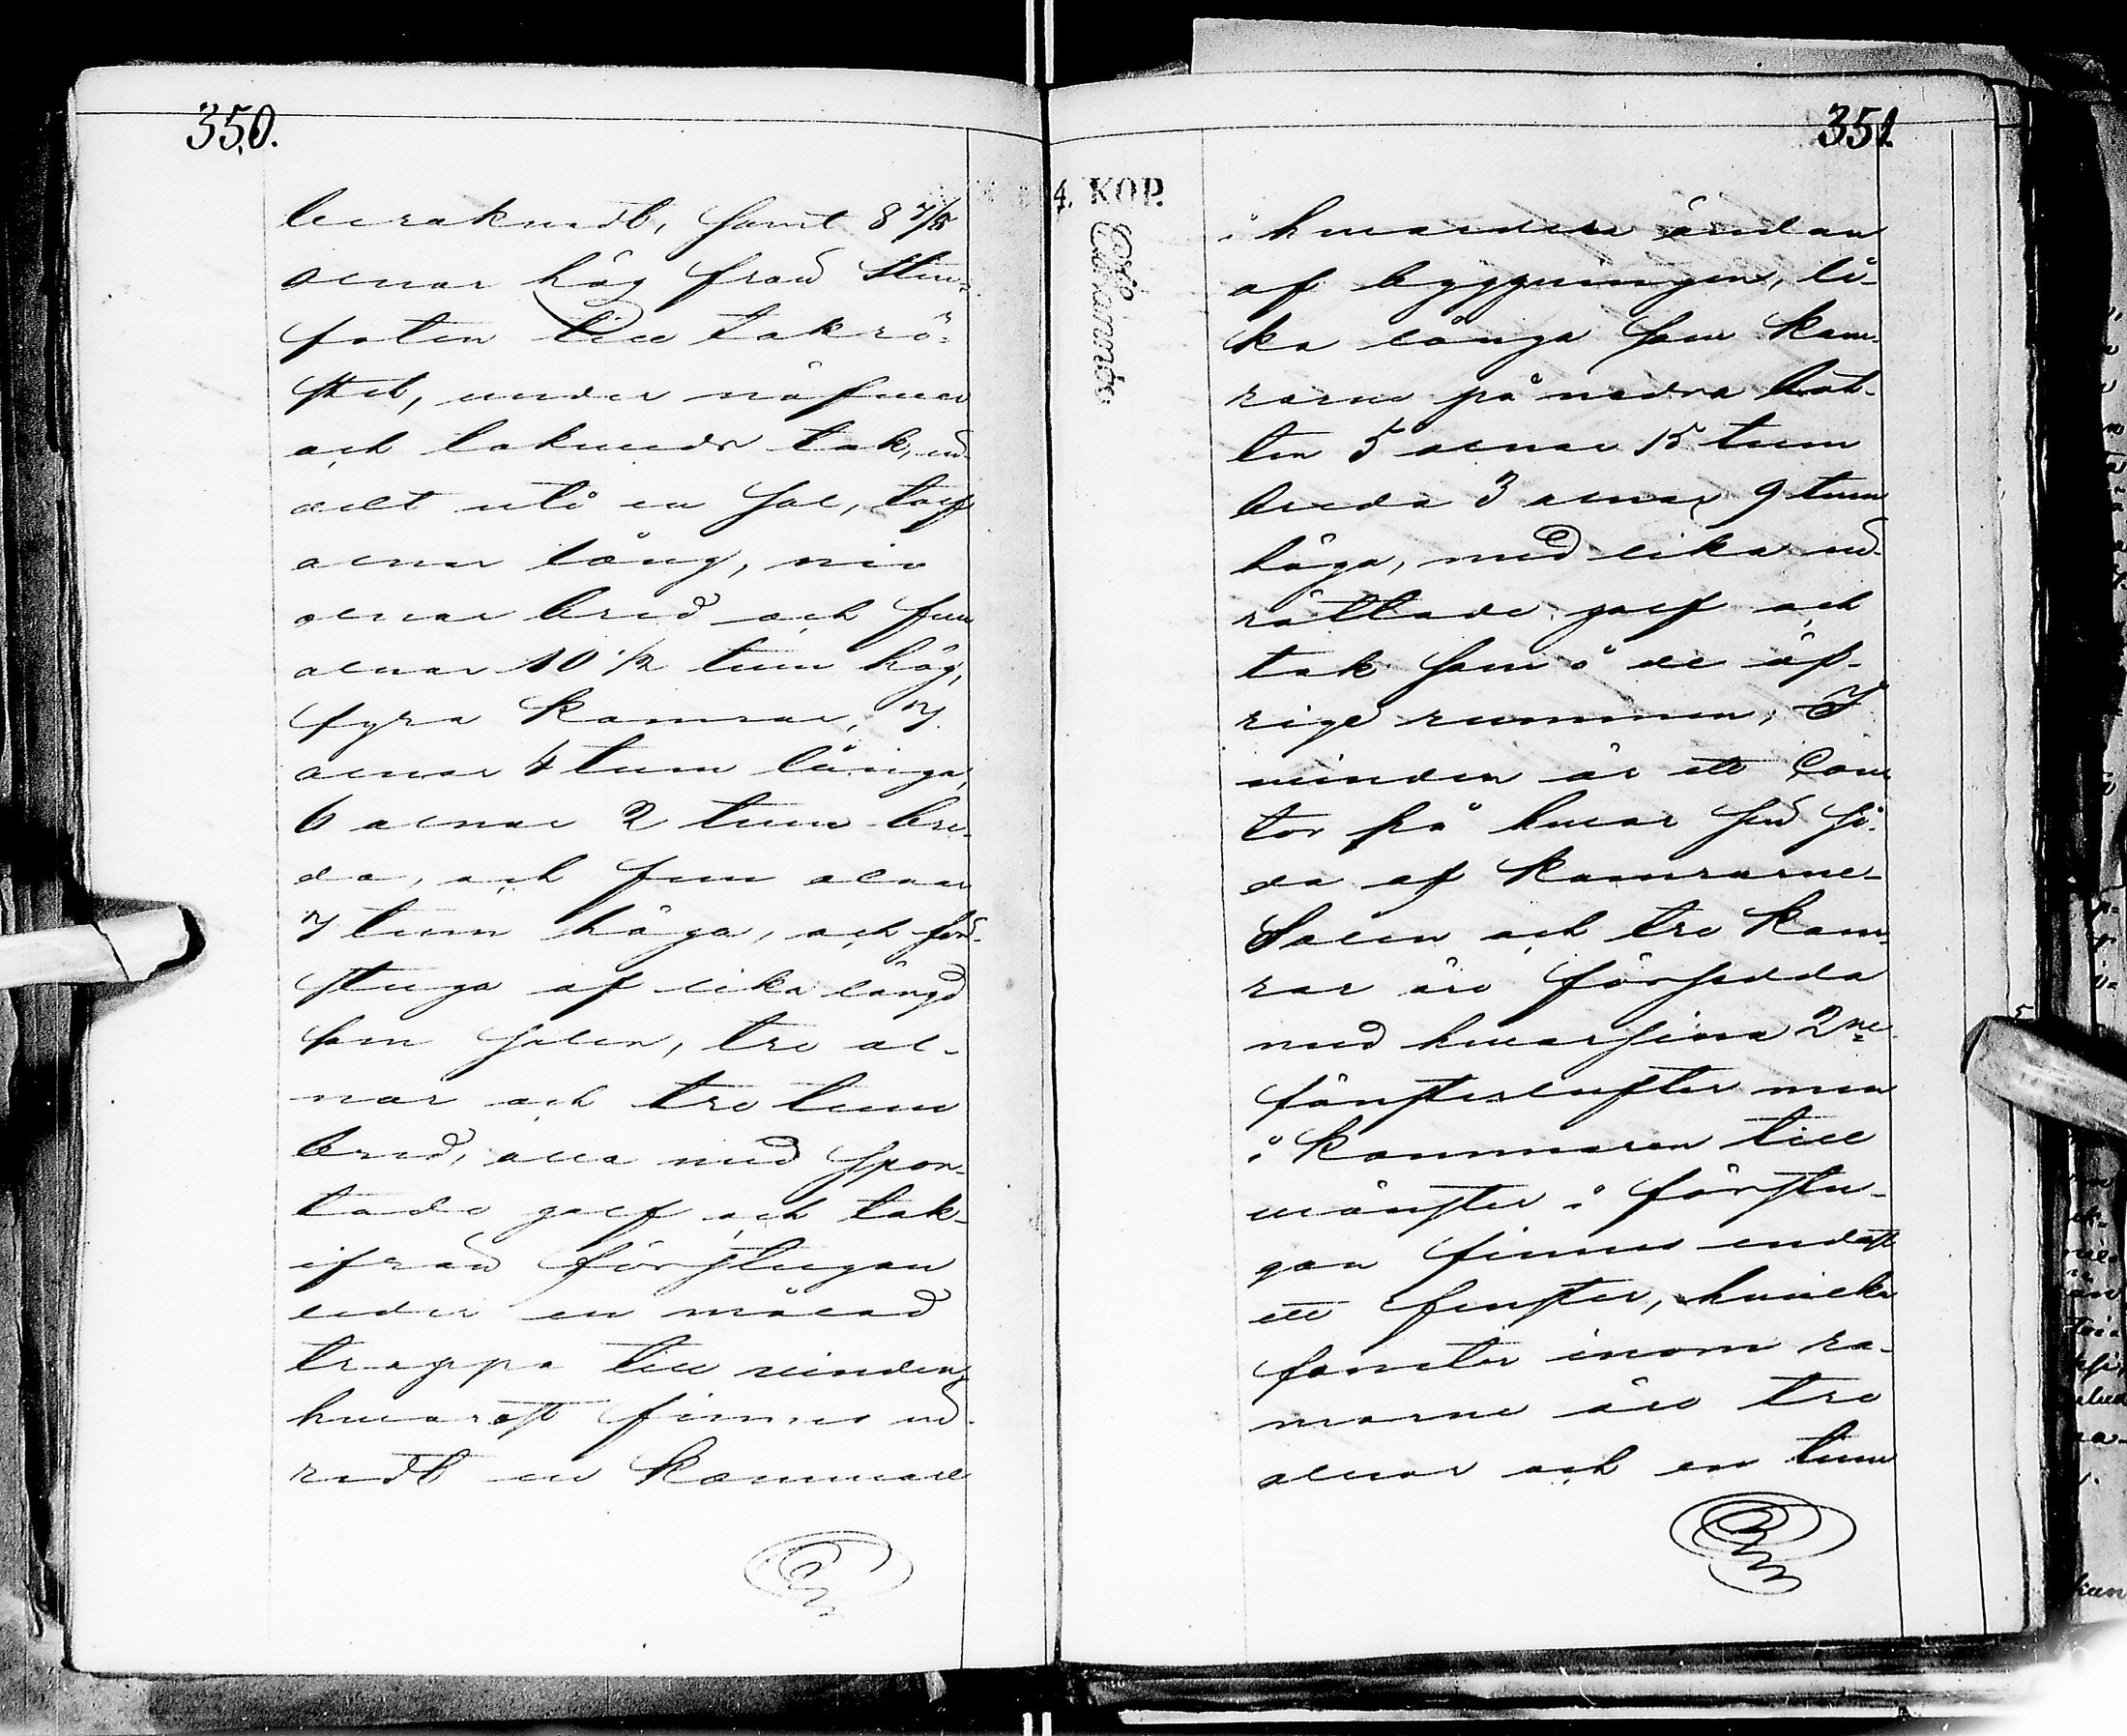 350.
beräknadt, samt 8 7/8
alnar hög från sten-
foten till takrö-
stet, under näfver
och takveds tak, in-
delt uti en sal, tolf
alnar lång, nio
alnar bred och fem
alnar 10 1/2 tum hög,
fyra kamrar, 7
alnar 4 tum långa,
6 alnar 2 tum bre-
da, och fem alnar
7 tum höga, och för-
stuga af lika längd
som salen, tre al-
nar och tre tum
bred, alla med spon-
tade golf och tak-
ifrån förstugan
leder en målad
trappa till vinden,
hvarest finnes in-
redt en kammare
351.
4. KOP.
i hvardera ändan
af byggningen, li-
ka långa som kam-
rarne på nedra bot-
ten 5 alnar 15 tum
breda 3 alnar 9 tum
höga, med lika in-
rättade golf och
tak som i de öf-
rige rummen; I
vinden är ett Con-
tor på hvar sin si-
da af kamrarne-
Salen och tre kam-
rar äro försedda
med hvarsina 2ne
fönsterlufter men
i kammaren till
vänster i förstu-
gan finnes endast
ett fenster, hvilka
fenster inom ra-
marne äro tre
alnar och en tum